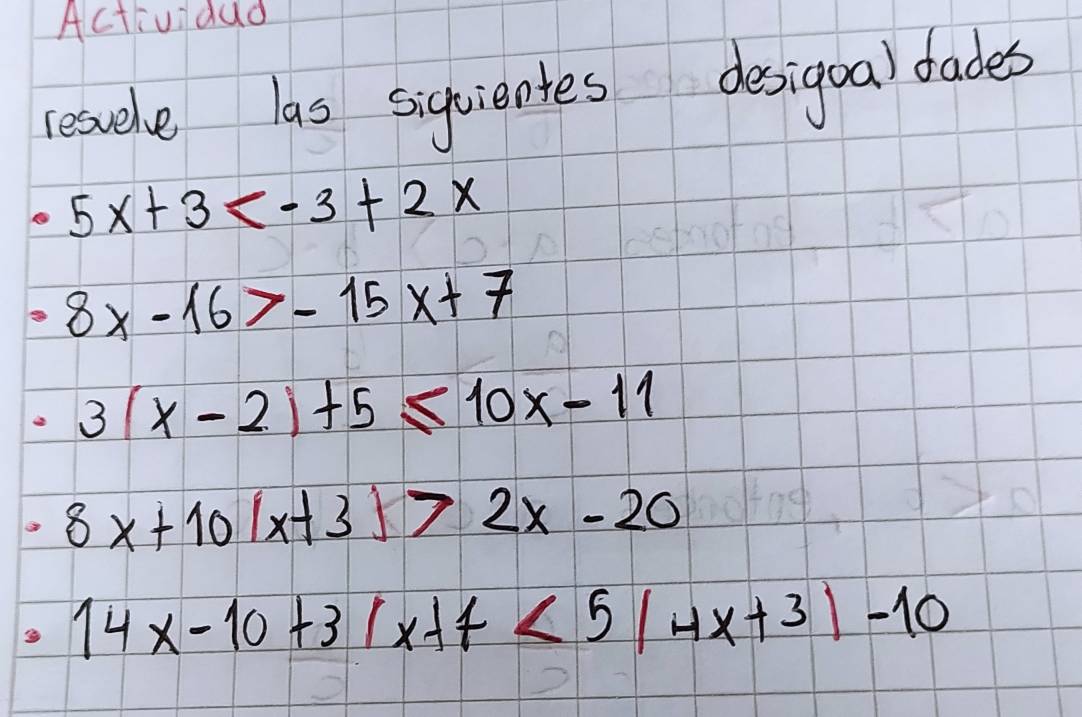 Actividad
resuelve las siguientes desigoaldades
• 5x+3<-3+2x
• 8x-16>-15x+7
• 3(x-2)+5≤10x-11
• 8x+10(x+3)>2x-20
• 14x-10+3(x+ < 5(4x+3)-10